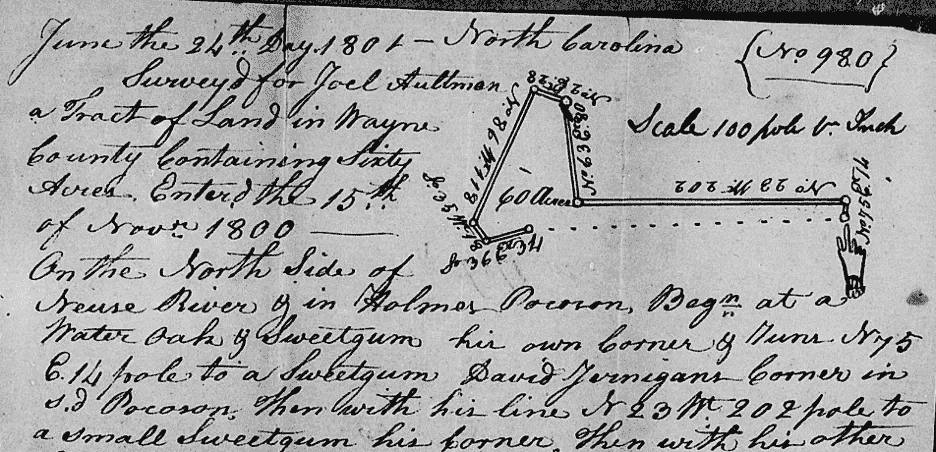 June the 24th Day. 1801 — North Carolina
{No 980}
Survey'd for Joel Aultman
a Tract of Land in Wayne
County Containing Sixty
Acres. Enterd the 15th
of Novr 1800 ———
Scale 100 pole pr Inch
60 Acres
No 2 23 W 202
On the North Side of
Neuse River & in Holmes Pocoson, Begn at a
Water oak & Sweetgum his own Corner & Runs N 75
E. 14 pole to a Sweetgum David Jernigans Corner in
s.d Pocoson, Then with his line N 23 W. 202 pole to
a small Sweetgum his Corner, Then with his other